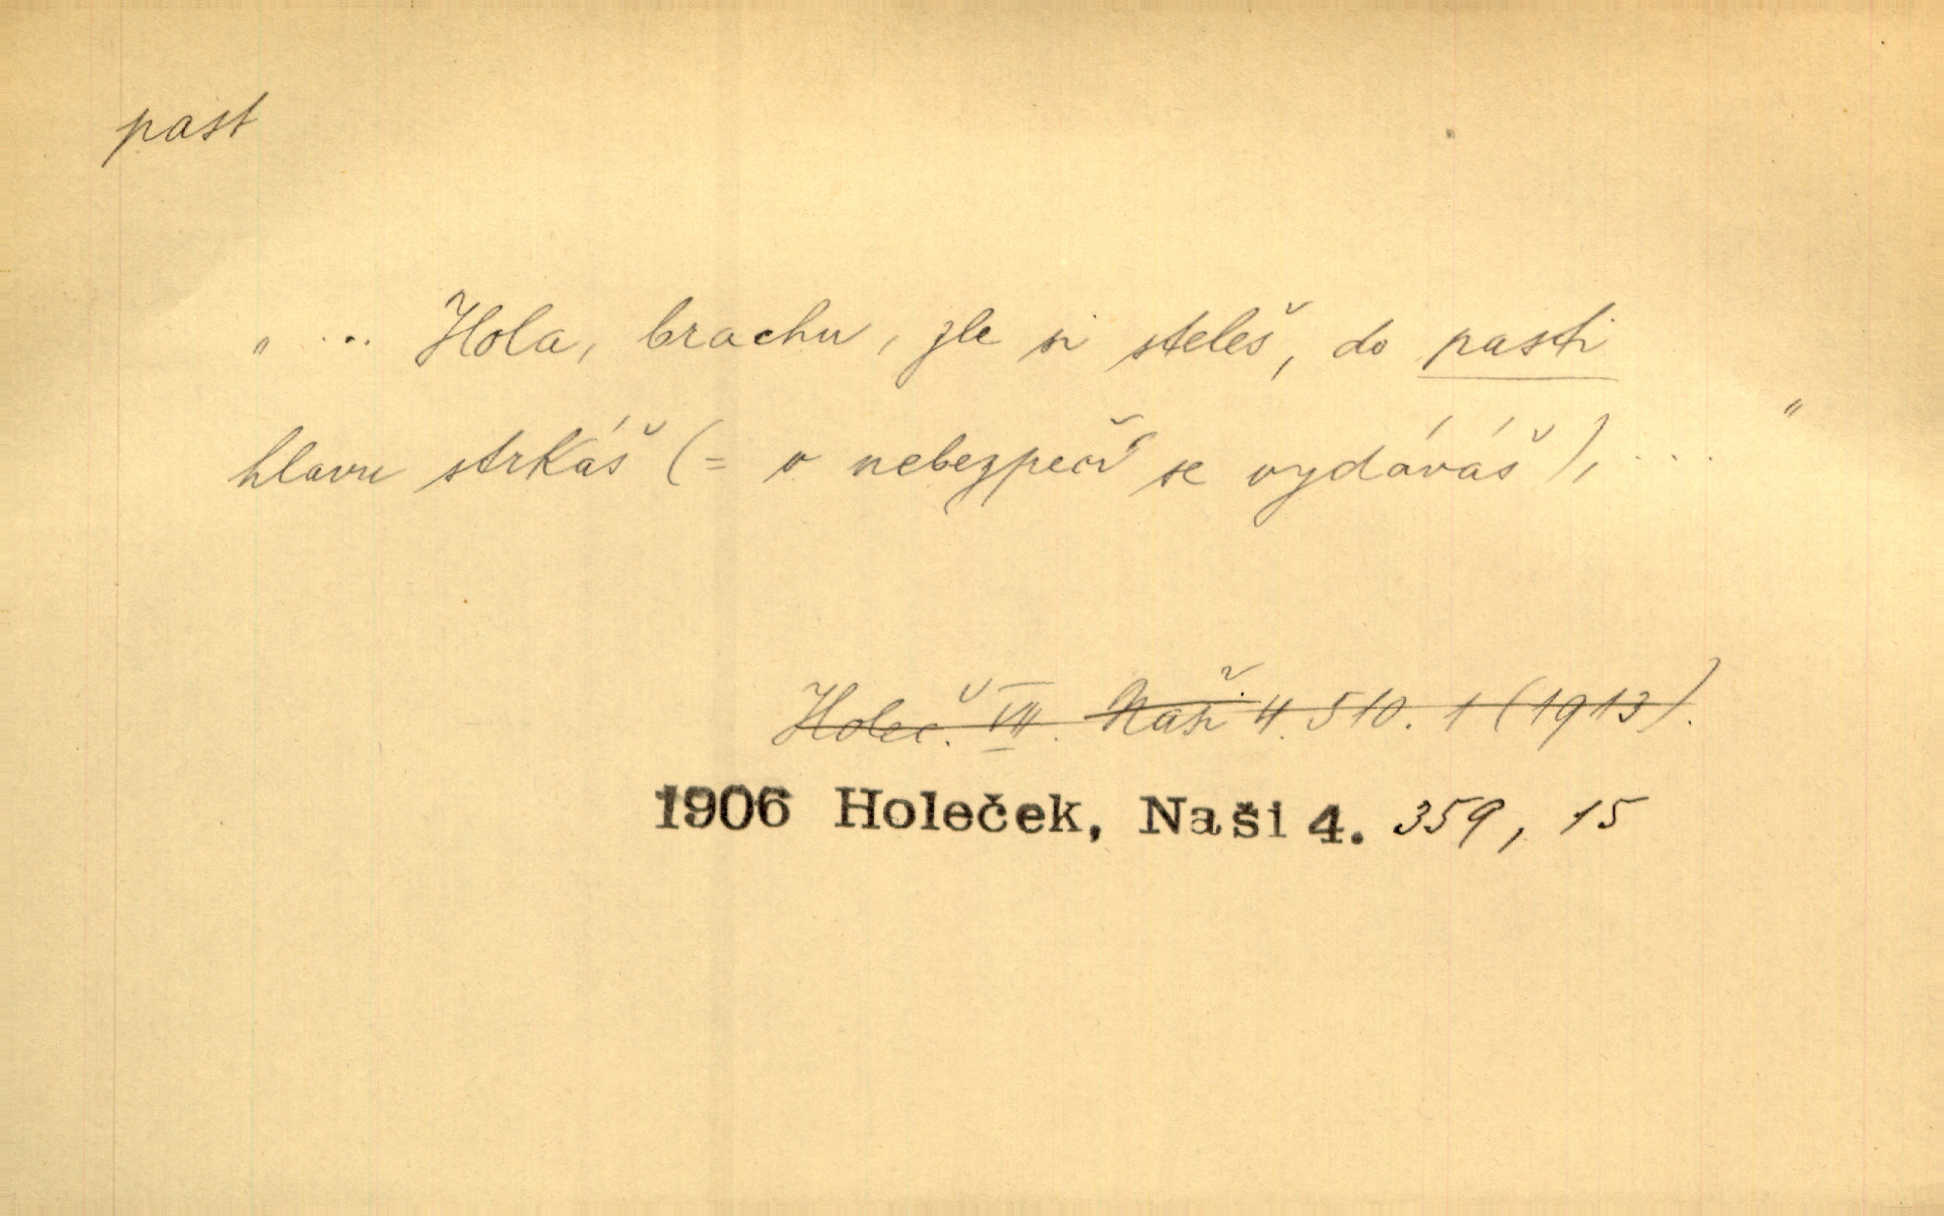 past
„ ... Hola, brachu, zle si steleš, do pasti
hlavu strkáš (= v nebezpečí se vydáváš), .... "
Holeč. VII. Naši 4. 510. 1 (1913).
1906 Holeček, Naši 4. 359, 15